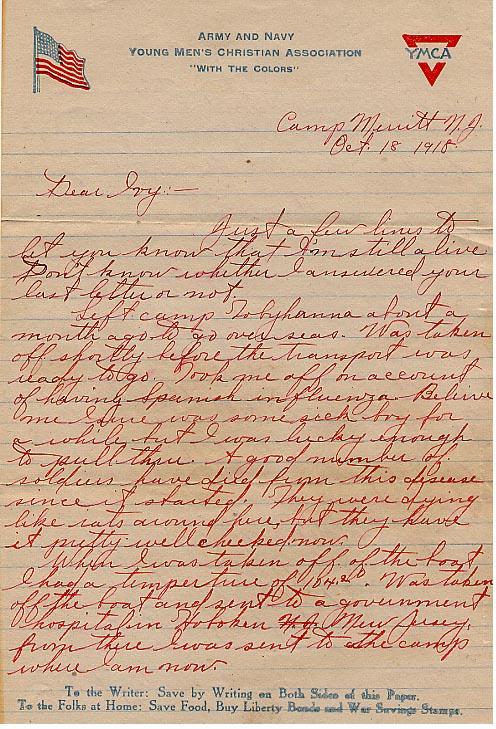 ARMY AND NAVY
YOUNG MEN'S CHRISTIAN ASSOCIATION
"WITH THE COLORS"
YMCA
Camp Merritt N.J.
Oct. 18 1918.
Dear Ivy:—
Just a few lines to
let you know that I'm still alive.
Don't know whether I answered your
last letter or not.
Left camp Tobyhanna about a
month ago to go over seas. Was taken
off shortly before the transport was
ready to go. Took me off on account
of having Spanish influenza. Believe
me I was some sick boy for
a while but I was lucky enough
to pull thru. A good number of
soldiers have died from this disease
since it started. They were dying
like rats around here, but they have
it pretty well checked now.
When I was taken off of the boat
I had a temperture of 104.2°. Was taken
off the boat and sent to a government
hospital in Hoboken New Jersey,
from there I was sent to the camp
where am now.
To the Writer: Save by Writing on Both Sides of this Paper.
To the Folks at Home: Save Food, Buy Liberty Bonds and War Savings Stamps.